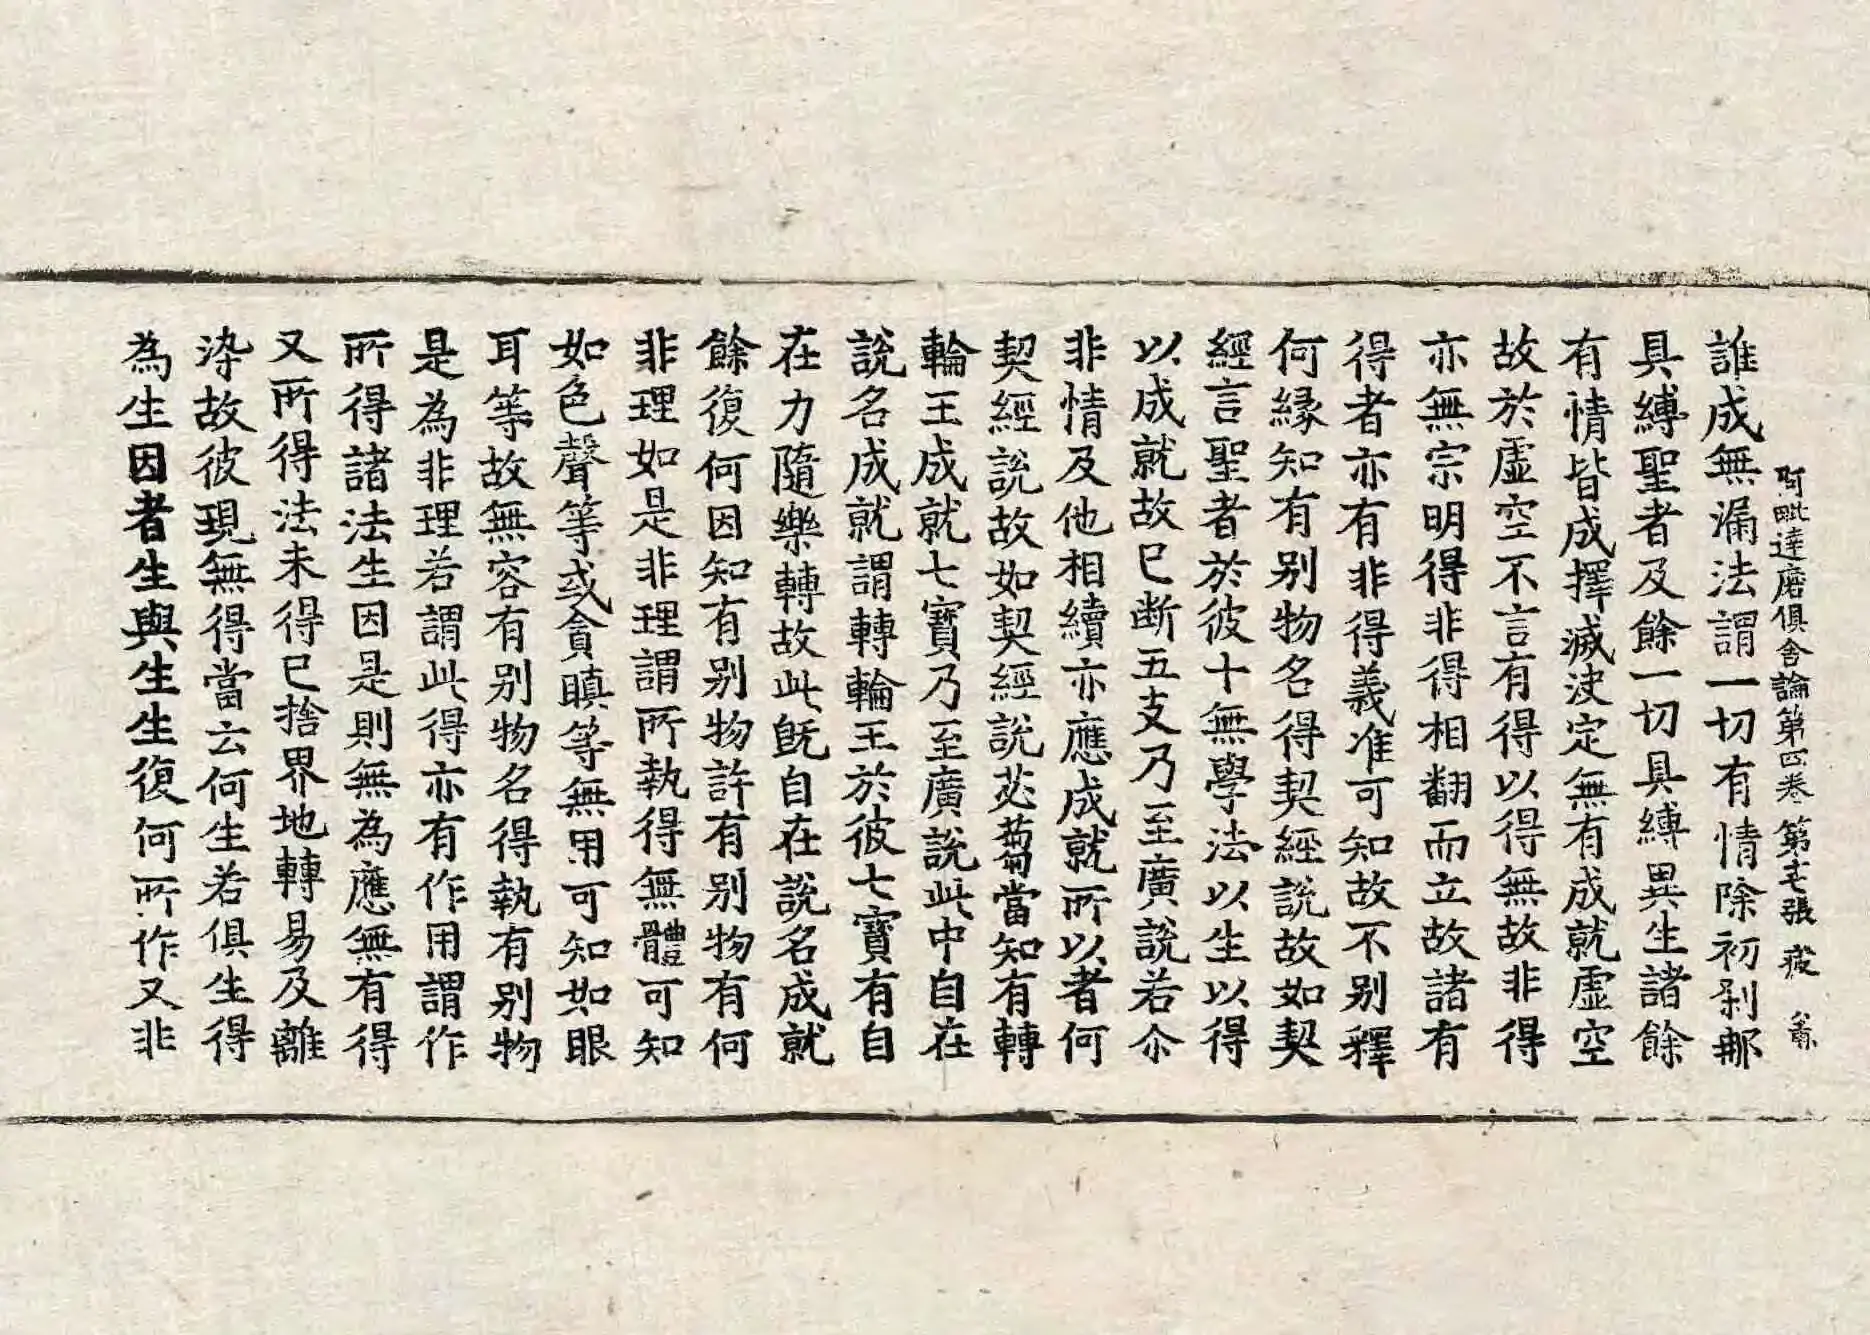 阿毗達磨俱舍論第四卷 第七張
誰成無漏法謂一切有情除初剎那
具縛聖者及餘一切具縛異生諸餘
有情皆成擇滅決定無有成就虛空
故於虛空不言有得以得無故非得
亦無宗明得非得相翻而立故諸有
得者亦有非得義准可知故不別釋
何緣知有別物名得契經說故如契
經言聖者於彼十無學法以生以得
以成就故已斷五支乃至廣說若尒
非情及他相續亦應成就所以者何
契經說故如契經說苾蒭當知有轉
輪王成就七寶乃至廣說此中自在
說名成就謂轉輪王於彼七寶有自
在力隨樂轉故此既自在說名成就
餘復何因知有別物許有別物有何
非理如是非理謂所執得無體可知
如色聲等或貪瞋等無用可知如眼
耳等故無容有別物名得執有別物
是為非理若謂此得亦有作用謂作
所得諸法生因是則無為應無有得
又所得法未得已捨界地轉易及離
染故彼現無得當云何生若俱生得
為生因者生與生生復何所作又非